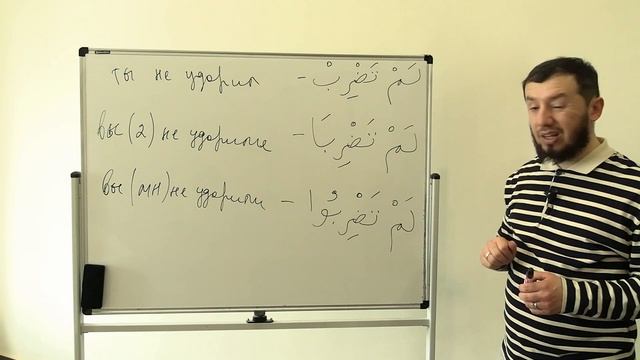 ты не ударил – لَمْ تَضْرِبْ
вы (2) не ударили – لَمْ تَضْرِبَا
вы (мн) не ударили – لَمْ تَضْرِبُوا